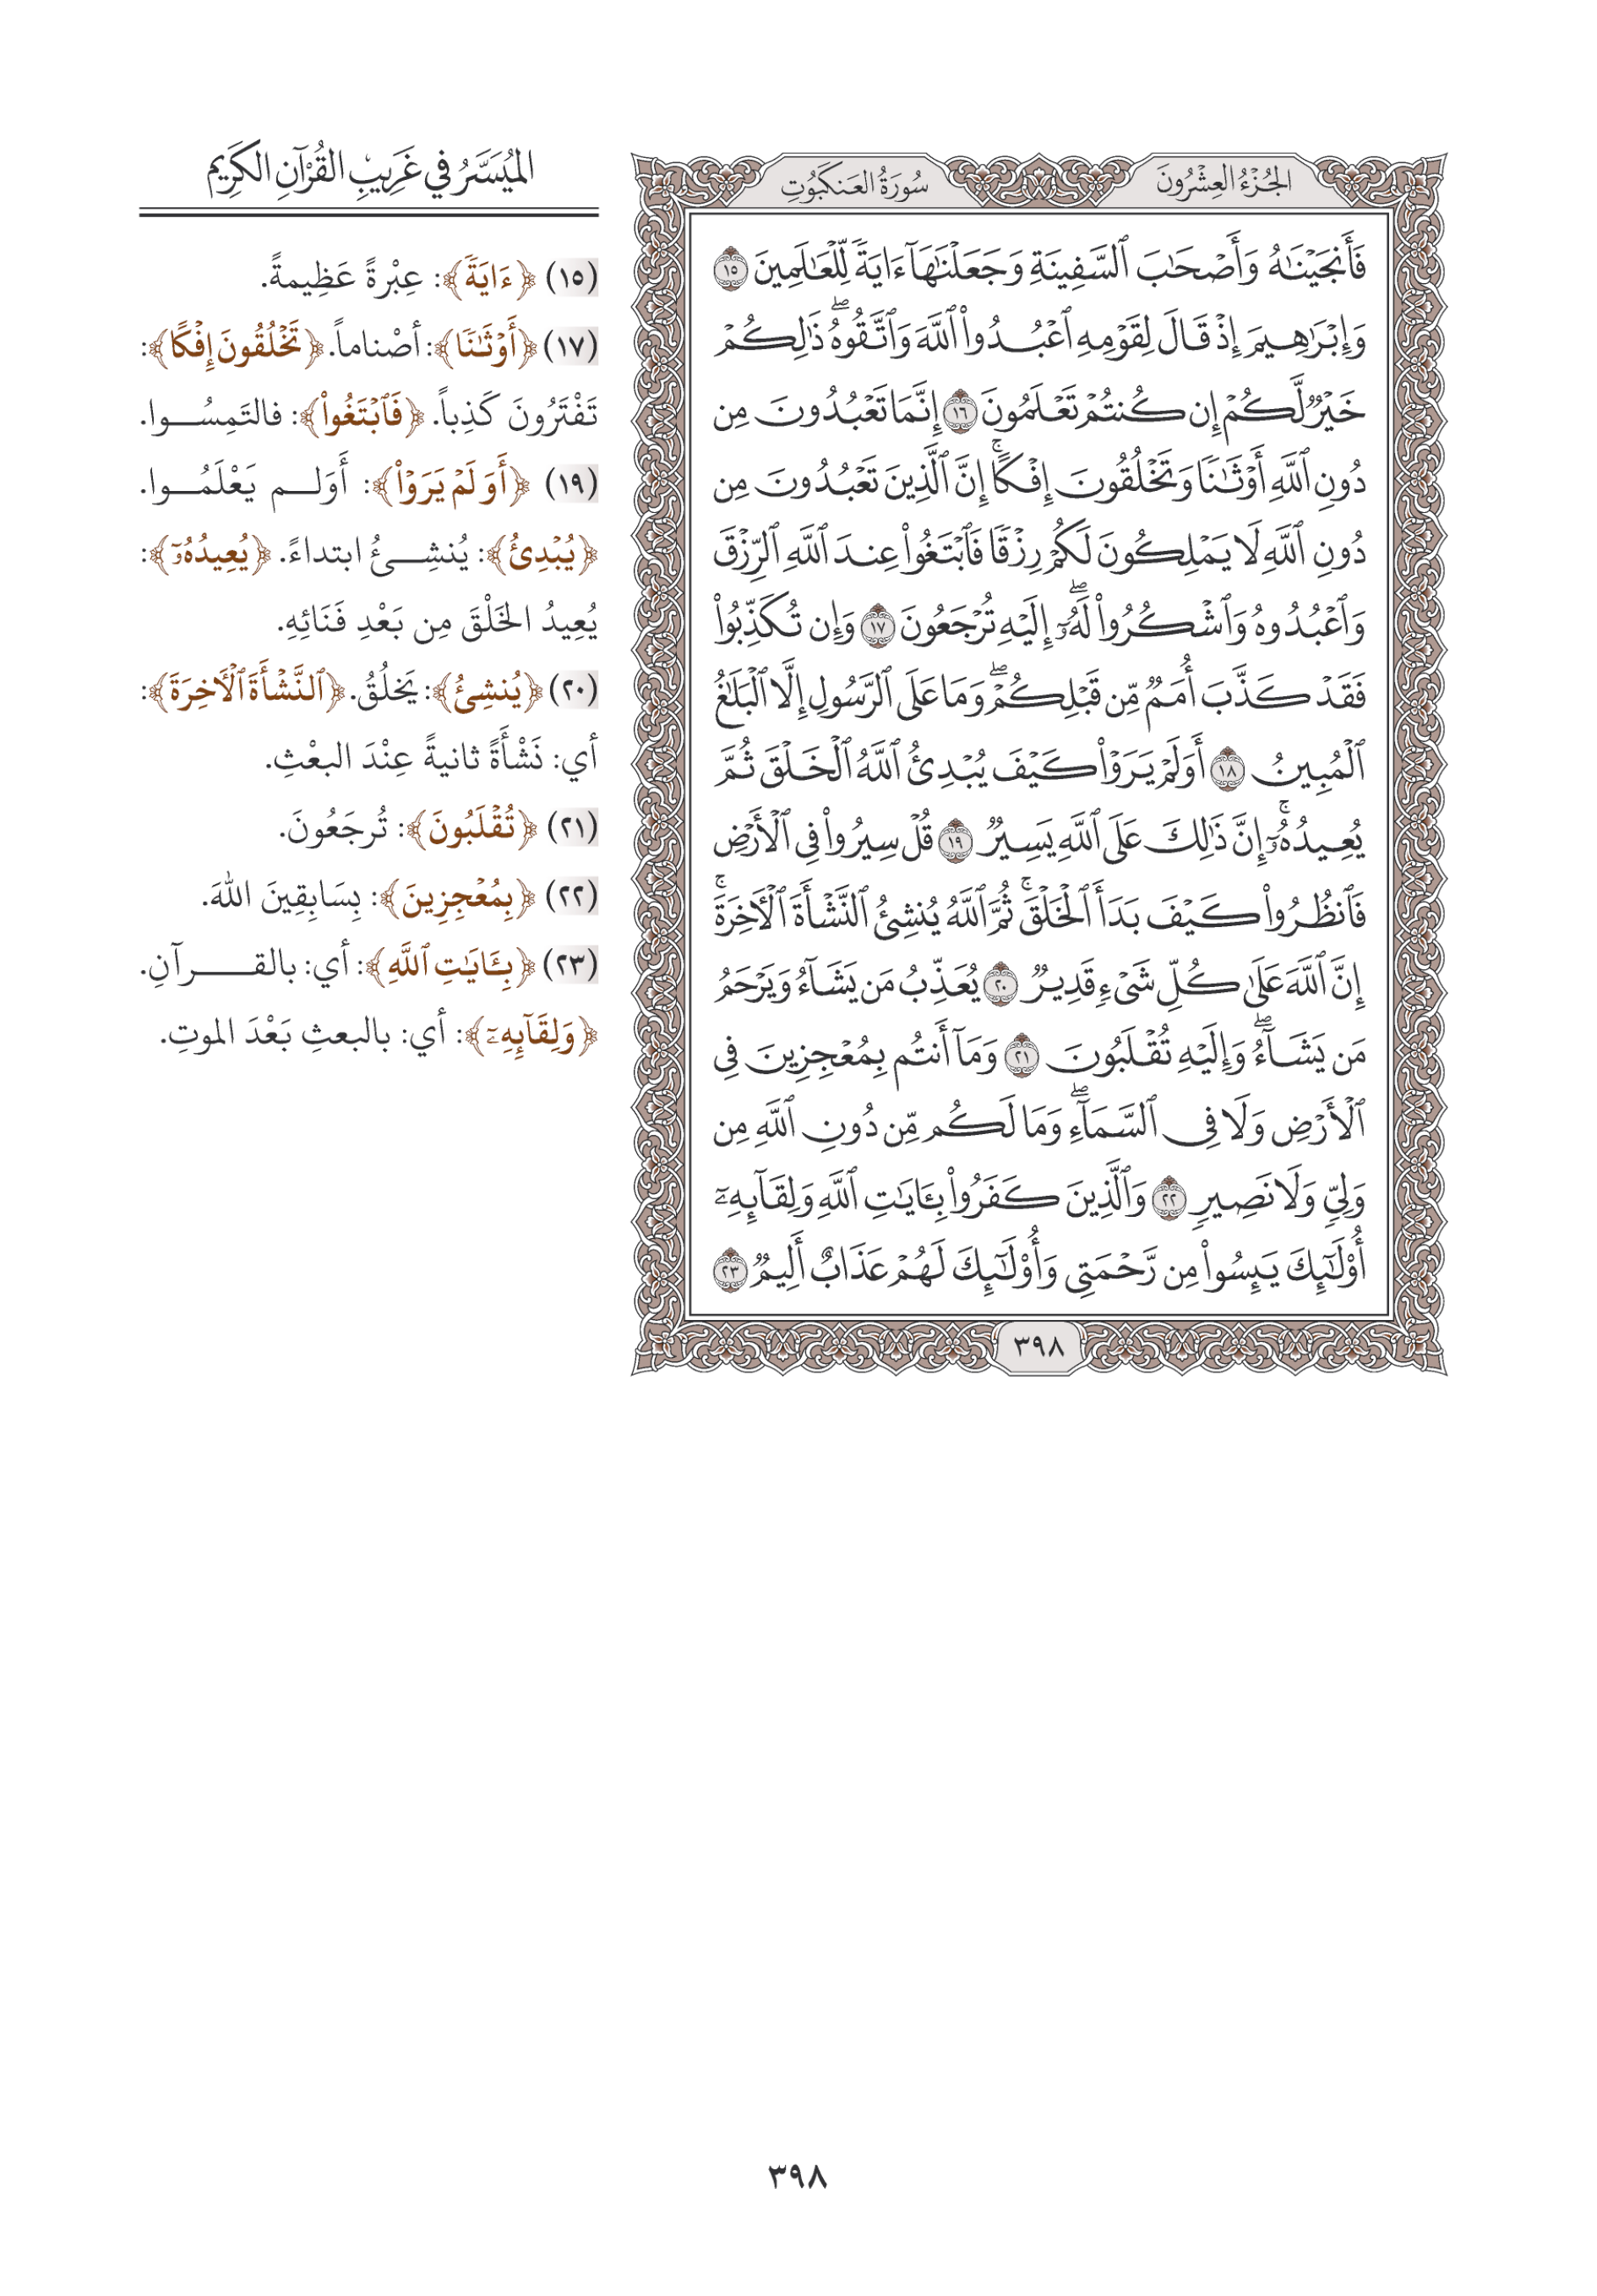 الجُزْءُ العِشْرُونَ
سُورَةُ العَنكَبُوتِ
فَأَنجَيْنَٰهُ وَأَصْحَٰبَ ٱلسَّفِينَةِ وَجَعَلْنَٰهَآ ءَايَةً لِّلْعَٰلَمِينَ ١٥
وَإِبْرَٰهِيمَ إِذْ قَالَ لِقَوْمِهِ ٱعْبُدُوا۟ ٱللَّهَ وَٱتَّقُوهُ ۖ ذَٰلِكُمْ
خَيْرٌ لَّكُمْ إِن كُنتُمْ تَعْلَمُونَ ١٦ إِنَّمَا تَعْبُدُونَ مِن
دُونِ ٱللَّهِ أَوْثَٰنًا وَتَخْلُقُونَ إِفْكًا ۚ إِنَّ ٱلَّذِينَ تَعْبُدُونَ مِن
دُونِ ٱللَّهِ لَا يَمْلِكُونَ لَكُمْ رِزْقًا فَٱبْتَغُوا۟ عِندَ ٱللَّهِ ٱلرِّزْقَ
وَٱعْبُدُوهُ وَٱشْكُرُوا۟ لَهُۥٓ ۖ إِلَيْهِ تُرْجَعُونَ ١٧ وَإِن تُكَذِّبُوا۟
فَقَدْ كَذَّبَ أُمَمٌ مِّن قَبْلِكُمْ ۖ وَمَا عَلَى ٱلرَّسُولِ إِلَّا ٱلْبَلَٰغُ
ٱلْمُبِينُ ١٨ أَوَلَمْ يَرَوْا۟ كَيْفَ يُبْدِئُ ٱللَّهُ ٱلْخَلْقَ ثُمَّ
يُعِيدُهُۥٓ ۚ إِنَّ ذَٰلِكَ عَلَى ٱللَّهِ يَسِيرٌ ١٩ قُلْ سِيرُوا۟ فِى ٱلْأَرْضِ
فَٱنظُرُوا۟ كَيْفَ بَدَأَ ٱلْخَلْقَ ۚ ثُمَّ ٱللَّهُ يُنشِئُ ٱلنَّشْأَةَ ٱلْأَخِرَةَ ۚ
إِنَّ ٱللَّهَ عَلَىٰ كُلِّ شَىْءٍ قَدِيرٌ ٢٠ يُعَذِّبُ مَن يَشَآءُ وَيَرْحَمُ
مَن يَشَآءُ ۖ وَإِلَيْهِ تُقْلَبُونَ ٢١ وَمَآ أَنتُم بِمُعْجِزِينَ فِى
ٱلْأَرْضِ وَلَا فِى ٱلسَّمَآءِ ۖ وَمَا لَكُم مِّن دُونِ ٱللَّهِ مِن
وَلِىٍّ وَلَا نَصِيرٍ ٢٢ وَٱلَّذِينَ كَفَرُوا۟ بِـَٔايَٰتِ ٱللَّهِ وَلِقَآئِهِۦٓ
أُو۟لَٰٓئِكَ يَئِسُوا۟ مِن رَّحْمَتِى وَأُو۟لَٰٓئِكَ لَهُمْ عَذَابٌ أَلِيمٌ ٢٣
٣٩٨
المُيَسَّرُ في غَرِيبِ القُرْآنِ الكَرِيم
(١٥) ﴿ءَايَةً﴾: عِبْرَةً عَظِيمةً.
(١٧) ﴿أَوْثَٰنًا﴾: أصْناماً. ﴿تَخْلُقُونَ إِفْكًا﴾:
تَفْتَرُونَ كَذِباً. ﴿فَٱبْتَغُوا۟﴾: فالتَمِسُـوا.
(١٩) ﴿أَوَلَمْ يَرَوْا۟﴾: أَوَلـم يَعْلَمُـوا.
﴿يُبْدِئُ﴾: يُنشِـئُ ابتداءً. ﴿يُعِيدُهُۥٓ﴾:
يُعِيدُ الخَلْقَ مِن بَعْدِ فَنَائِهِ.
(٢٠) ﴿يُنشِئُ﴾: يَخلُقُ. ﴿ٱلنَّشْأَةَ ٱلْأَخِرَةَ﴾:
أي: نَشْأَةً ثانيةً عِنْدَ البعْثِ.
(٢١) ﴿تُقْلَبُونَ﴾: تُرجَعُونَ.
(٢٢) ﴿بِمُعْجِزِينَ﴾: بِسَابِقِينَ اللهَ.
(٢٣) ﴿بِـَٔايَٰتِ ٱللَّهِ﴾: أي: بالقـرآنِ.
﴿وَلِقَآئِهِۦٓ﴾: أي: بالبعثِ بَعْدَ الموتِ.
٣٩٨